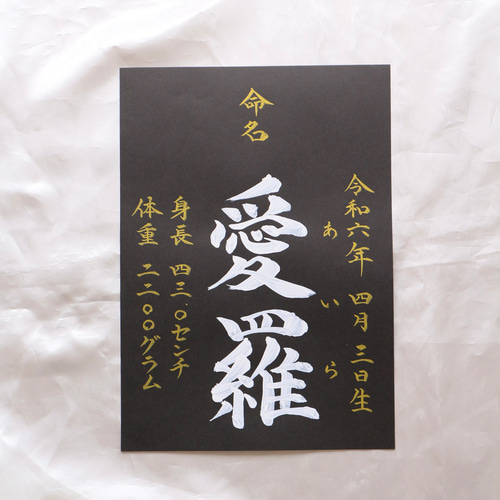 命名
令和六年 四月 三日生
あいら
愛羅
身長 四三.〇センチ
体重 二二〇〇グラム